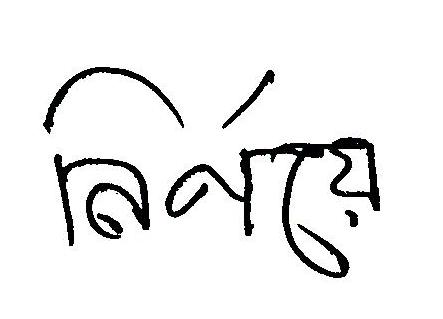 নির্ণয়ে